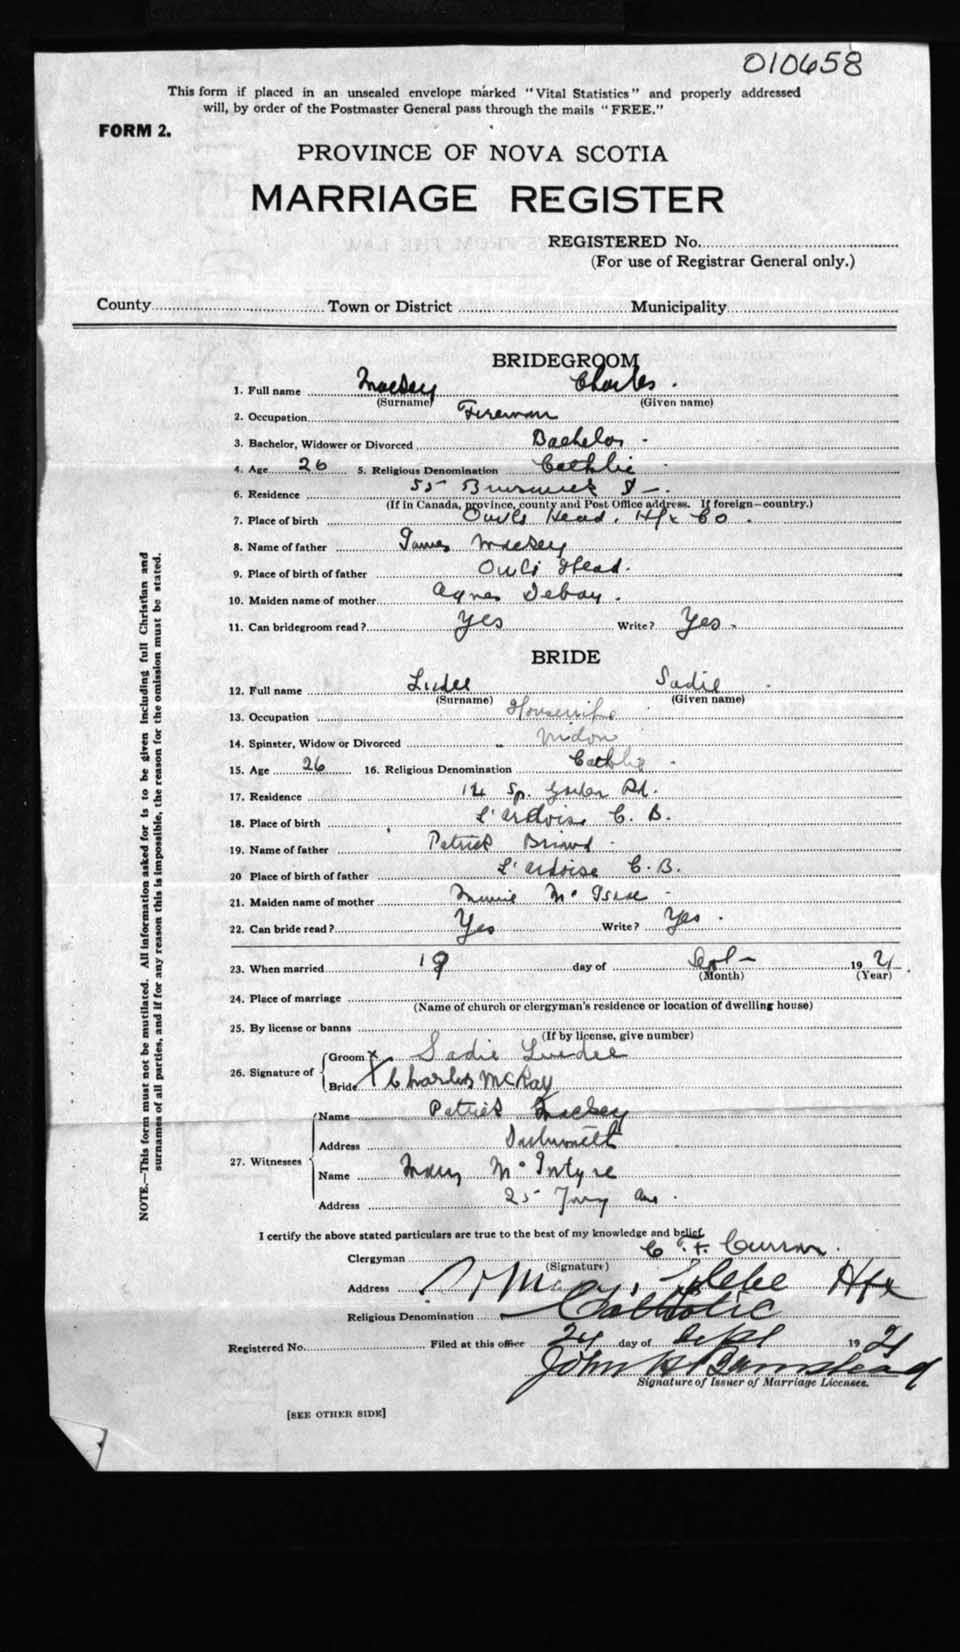 010658
This form if placed in an unsealed envelope marked "Vital Statistics" and properly addressed
will, by order of the Postmaster General pass through the mails "FREE."
FORM 2.
PROVINCE OF NOVA SCOTIA
MARRIAGE REGISTER
REGISTERED No.
(For use of Registrar General only.)
County Town or District Municipality
BRIDEGROOM
1. Full name Charles
(Surname) (Given name)
2. Occupation Fireman
3. Bachelor, Widower or Divorced Bachelor
4. Age 26 5. Religious Denomination Cathlic
6. Residence 55 Brunswick St
(If in Canada, province, county and Post Office address. If foreign—country.)
7. Place of birth Owls Head, Hfx Co.
8. Name of father James
9. Place of birth of father Owls Head.
10. Maiden name of mother Agnes Debay.
11. Can bridegroom read? Yes Write? Yes
BRIDE
12. Full name Sadie
(Surname) (Given name)
13. Occupation Housewife
14. Spinster, Widow or Divorced Widow
15. Age 26 16. Religious Denomination Cathlic
17. Residence 14 Sp. Garden Rd.
18. Place of birth L'Ardoise C. B.
19. Name of father Patrick Briand
20 Place of birth of father L'Ardoise C. B.
21. Maiden name of mother Minnie
22. Can bride read? Yes Write? Yes
23. When married 19 day of 19 21
(Month) (Year)
24. Place of marriage
(Name of church or clergyman's residence or location of dwelling house)
25. By license or banns
(If by license, give number)
26. Signature of Groom x Sadie
Bride x Charles McKay
27. Witnesses Name Patrick
Address Dartmouth
Name Mary McIntyre
Address 25
I certify the above stated particulars are true to the best of my knowledge and belief.
Clergyman C. F. Curran.
(Signature)
Address St Marys, Glebe Hfx
Religious Denomination Catholic
Registered No. Filed at this office 24 day of Sept 19 21
John H Barnstead
Signature of Issuer of Marriage Licenses.
[SEE OTHER SIDE]
NOTE.—This form must not be mutilated. All information asked for is to be given including full Christian and
surnames of all parties, and if for any reason this is impossible, the reason for the omission must be stated.